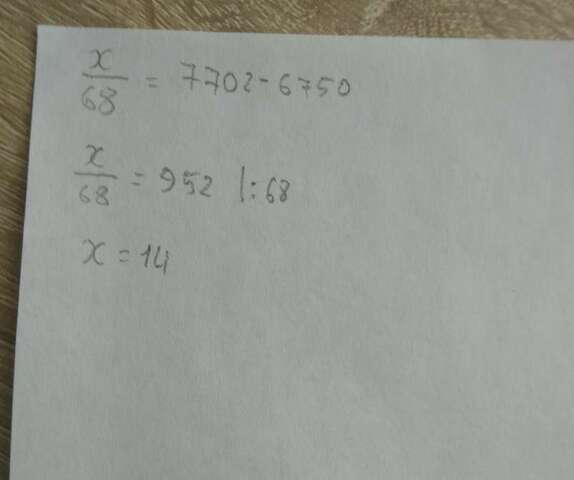 x/68 = 7702-6750
x/68 = 952 |:68
x = 14